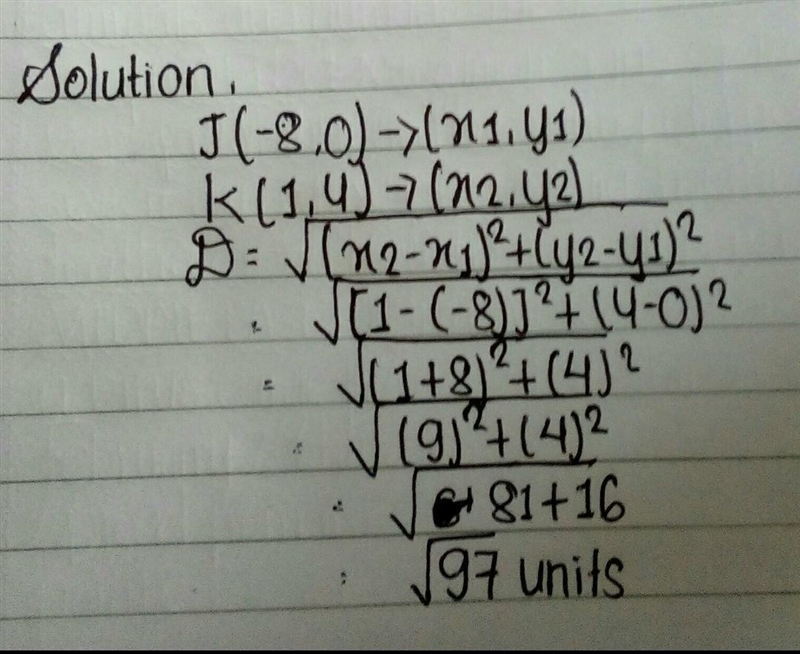 Solution.
J(-8,0)->(x1,y1)
K(1,4)->(x2,y2)
D = √(x2-x1)²+(y2-y1)²
= √[1-(-8)]²+(4-0)²
= √(1+8)²+(4)²
= √(9)²+(4)²
= √81+16
= √97 units